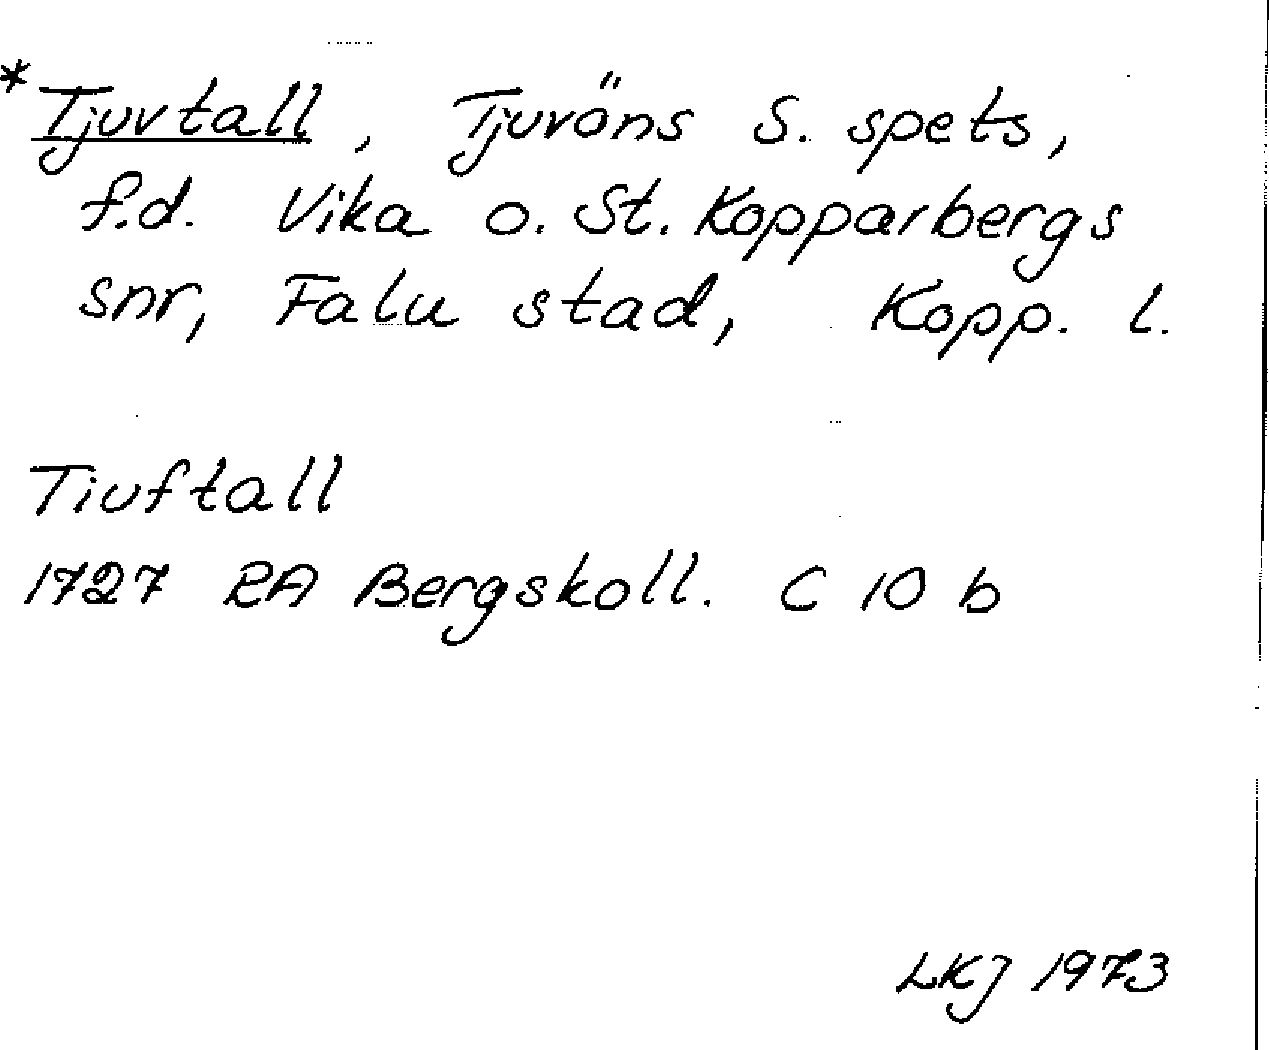 *Tjuvtall, Tjuvöns S. spets,
f.d. Vika o. St. Kopparbergs
snr, Falu stad, Kopp. l.
Tiuftall
1727 RA Bergskoll. C 10 b
LKJ 1973